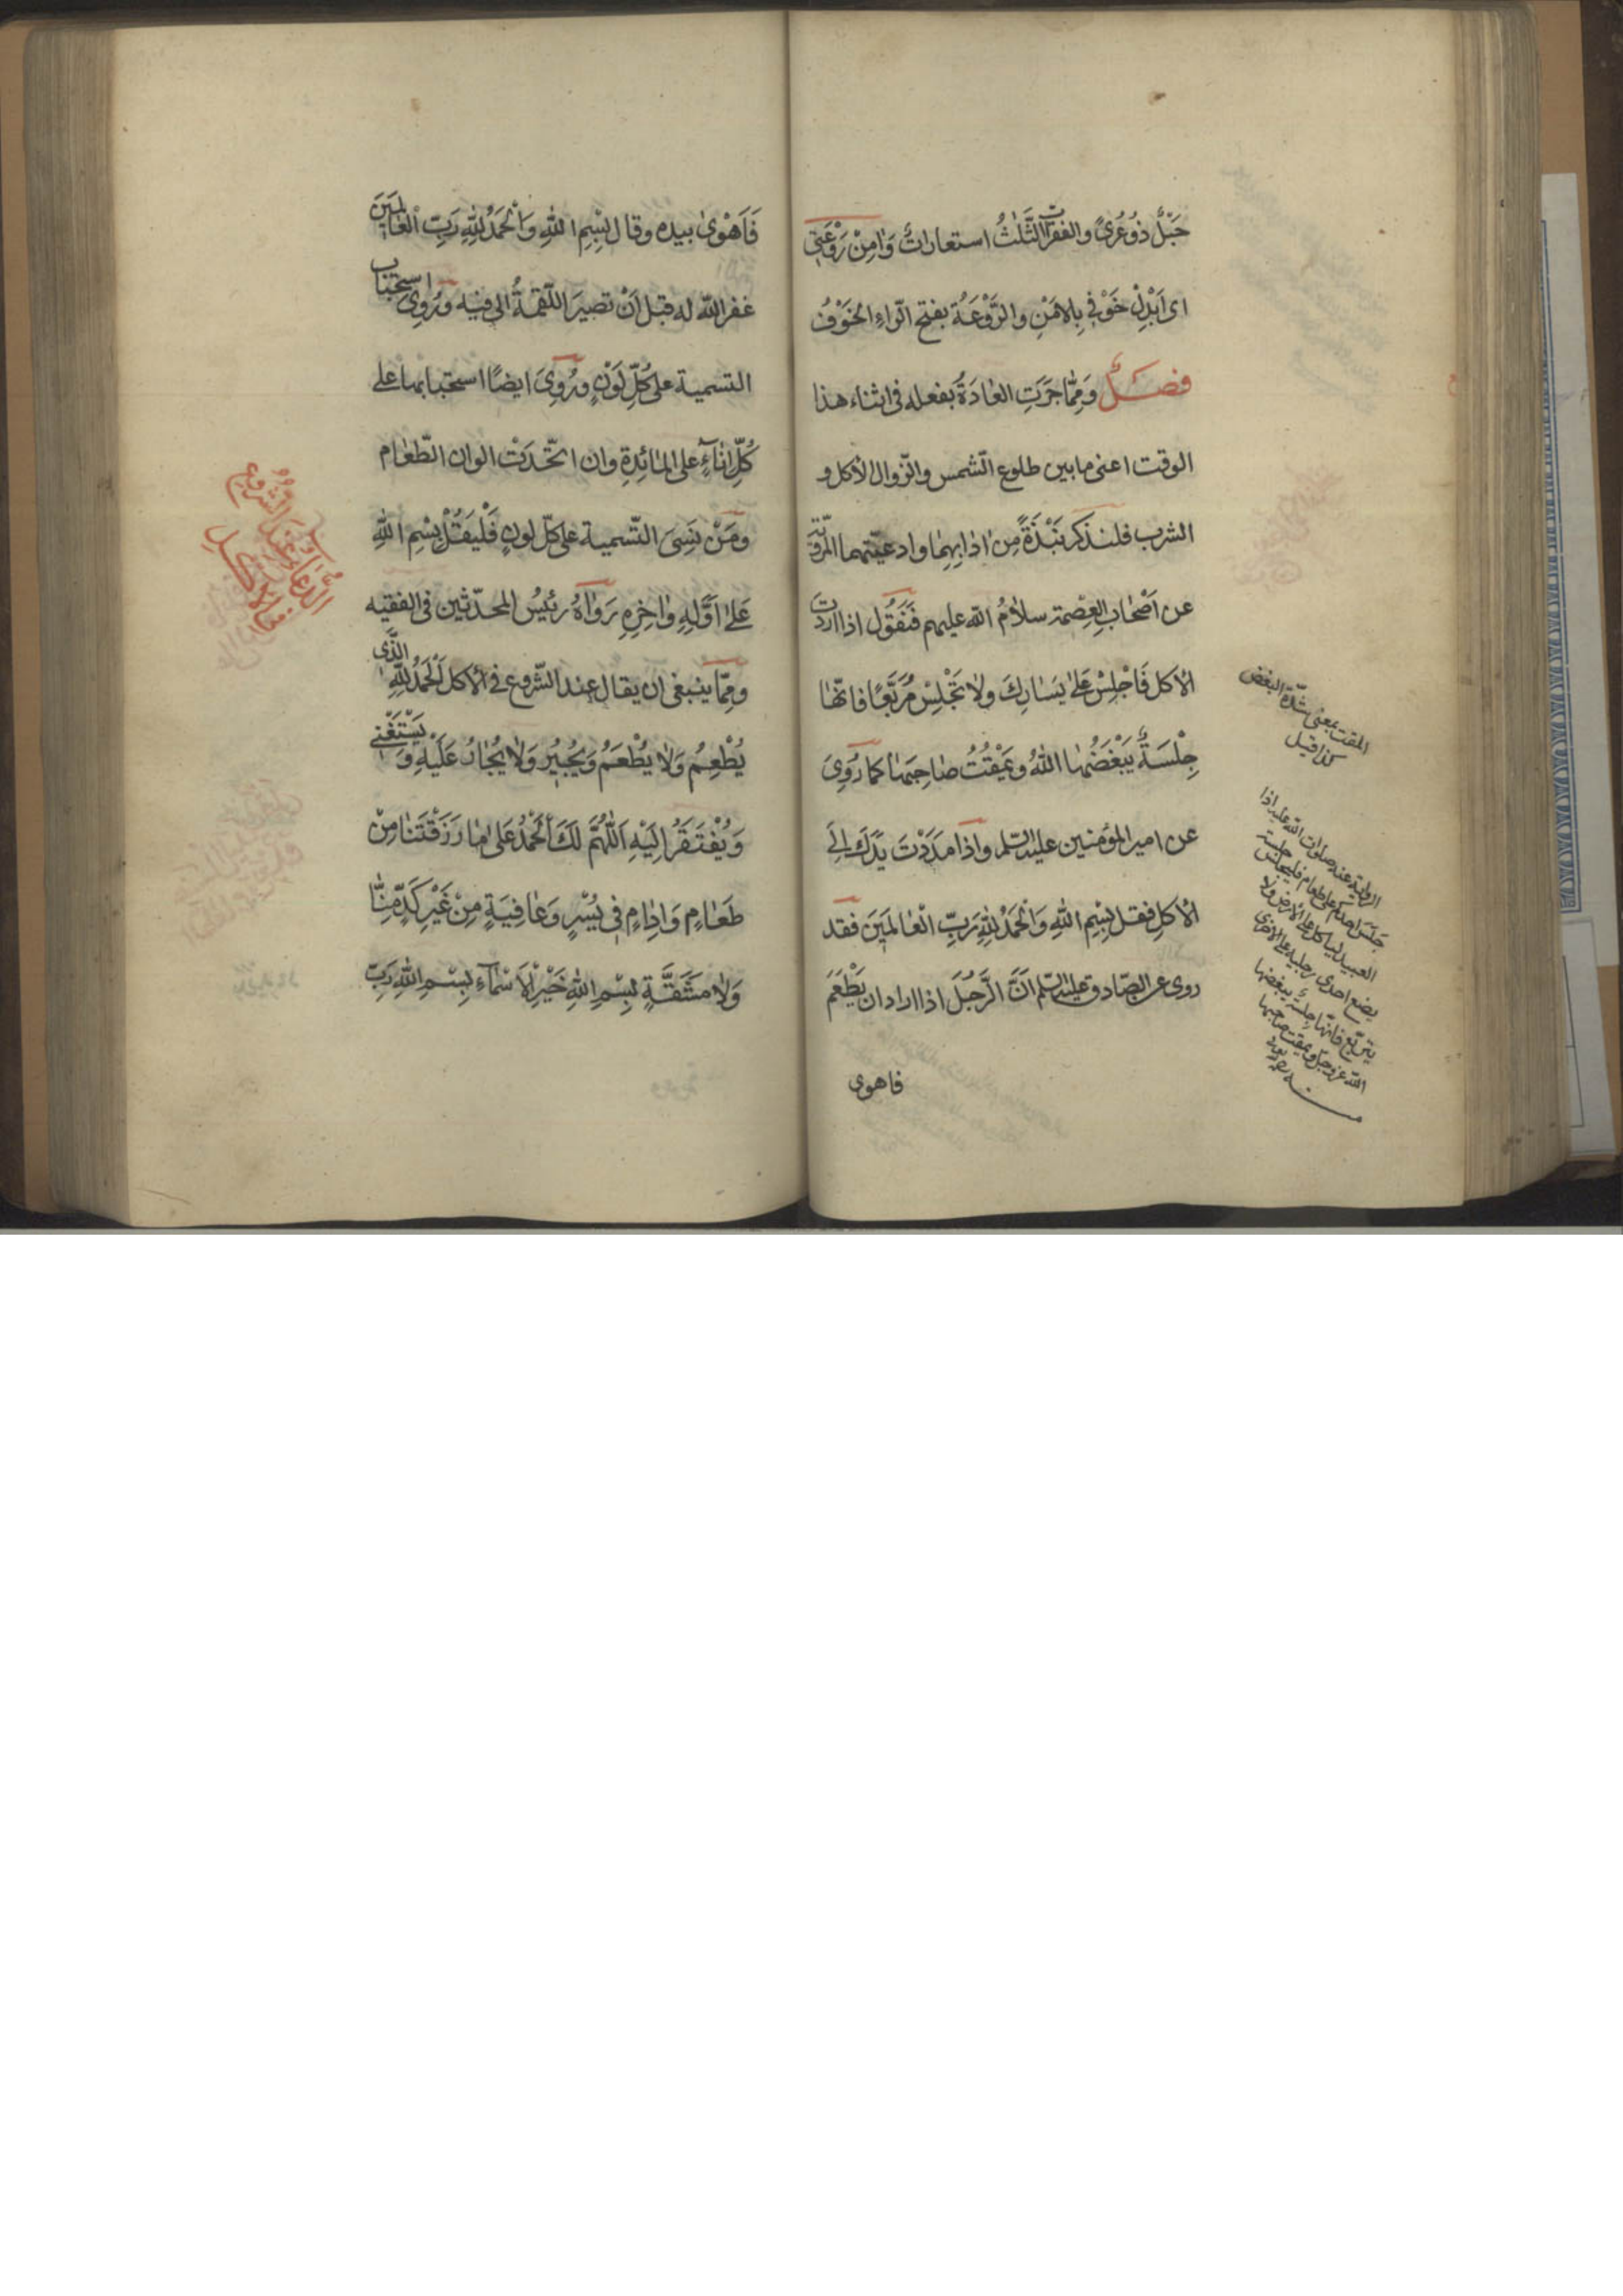 حَبْلٌ ذُو عُرىً والفقرات الثَّلٰثُ استعاراتٌ وَاٰمِنْ رَوْعَتِي
اى اَبْدِلْ خَوْفِي بِالاَمْنِ والرَّوْعَةُ بفتح الرّاءِ الخَوْفُ
فصلٌ وَمِمّا جَرَتِ العٰادَةُ بفعله فى اثناء هذا
الوقت اعنى مابين طلوع الشّمس والزّوال الأكل و
الشرب فلنذكر نَبْذَةً مِنْ اٰدٰابِهِمٰا وادعيّتهما المرويّة
عن اَصْحٰابِ العِصْمة سلاٰمُ اللّه عليهم فَنَقُول اذا اردت
الأكل فَاجْلِسْ عَلىٰ يَسٰارِكَ ولاٰ تَجْلِسْ مُرَبَّعًا فانّهٰا
جِلْسَةٌ يَبْغَضُهٰا اللّٰهُ ويَمْقُتُ صٰاحِبَهٰا كما رُوِىَ
عن امير المؤمنين عليه السّلم واذا مَدَدْتَ يَدَكَ اِلَى
الأكلِ فقل بِسْمِ اللّٰهِ وَالْحَمْدُ لِلّٰهِ رَبِّ الْعٰالَمِينَ فقد
روى عن الصّادق عليه السّلم اَنَّ الرَّجُلَ اذا اراد ان يَطْعَمَ
فاهوى
المقت بمعنى شدّة البغض
كذا قيل
الرواية عنه صلوات اللّه عليه اذا
جَلَسَ احدكم على طعام فليجلس جلسة
العبيد ليأكل على الأرض ولا
يضع احدى رجليه على الاخرى
يتربّع فانّها جلسة يبغضها
اللّه عزّ وجلّ ويمقت صاحبها
منه
فَاَهْوىٰ بيده وقال بِسْمِ اللّٰهِ وَالْحَمْدُ لِلّٰهِ رَبِّ الْعٰالَمِينَ
غفر اللّه له قبل اَنْ تصيرَ اللّقمةُ الى فيه ورُوِىَ استحباب
التسمية على كُلِّ لَوْنٍ ورُوِىَ ايضًا استحبابها على
كُلِّ اِنٰاءٍ على المٰائِدةِ وان اتّحدَتْ الوان الطّعٰام
ومَنْ نَسِىَ التّسمية على كلّ لونٍ فَلْيَقُلْ بِسْمِ اللّٰهِ
عَلىٰ اَوَّلِهِ وَاٰخِرِهِ رَوٰاهُ رئيسُ المحدّثين فى الفقيه
وممّا ينبغى ان يقال عند الشّروع فى الأكل اَلْحَمْدُ لِلّٰهِ الَّذى
يُطْعِمُ وَلاٰ يُطْعَمُ وَيُجِيرُ وَلاٰ يُجٰارُ عَلَيْهِ وَيَسْتَغْنِي
وَيُفْتَقَرُ اِلَيْهِ اَللّٰهُمَّ لَكَ الْحَمْدُ عَلىٰ مٰا رَزَقْتَنٰا مِنْ
طَعٰامٍ وَاِدٰامٍ فِي يُسْرٍ وَعٰافِيَةٍ مِنْ غَيْرِ كَدٍّ مِنّٰا
وَلاٰ مَشَقَّةٍ بِسْمِ اللّٰهِ خَيْرِ الْاَسْمٰآءِ بِسْمِ اللّٰهِ رَبِّ
الدّعاء عند الشروع
فى الأكل